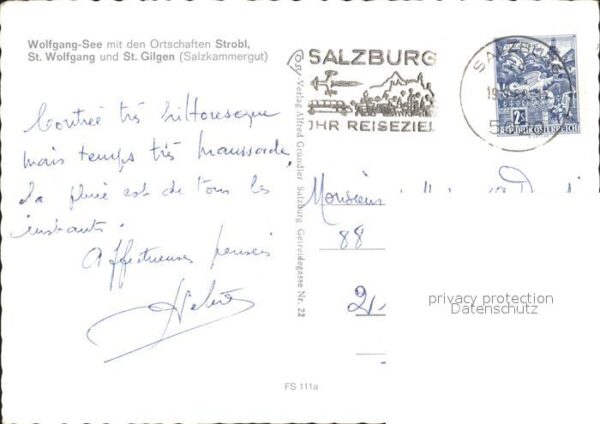 Wolfgang-See mit den Ortschaften Strobl,
St. Wolfgang und St. Gilgen (Salzkammergut)
SALZBURG
IHR REISEZIEL
SALZBURG
19
50
2S
REPUBLIK ÖSTERREICH
Verlag Alfred Gründler Salzburg Getreidegasse Nr. 22
Contrée très pittoresque
mais temps très maussade,
la pluie est de tous les
instants.
Affectueuses pensées
Monsieur
88
21
privacy protection
Datenschutz
FS 111a